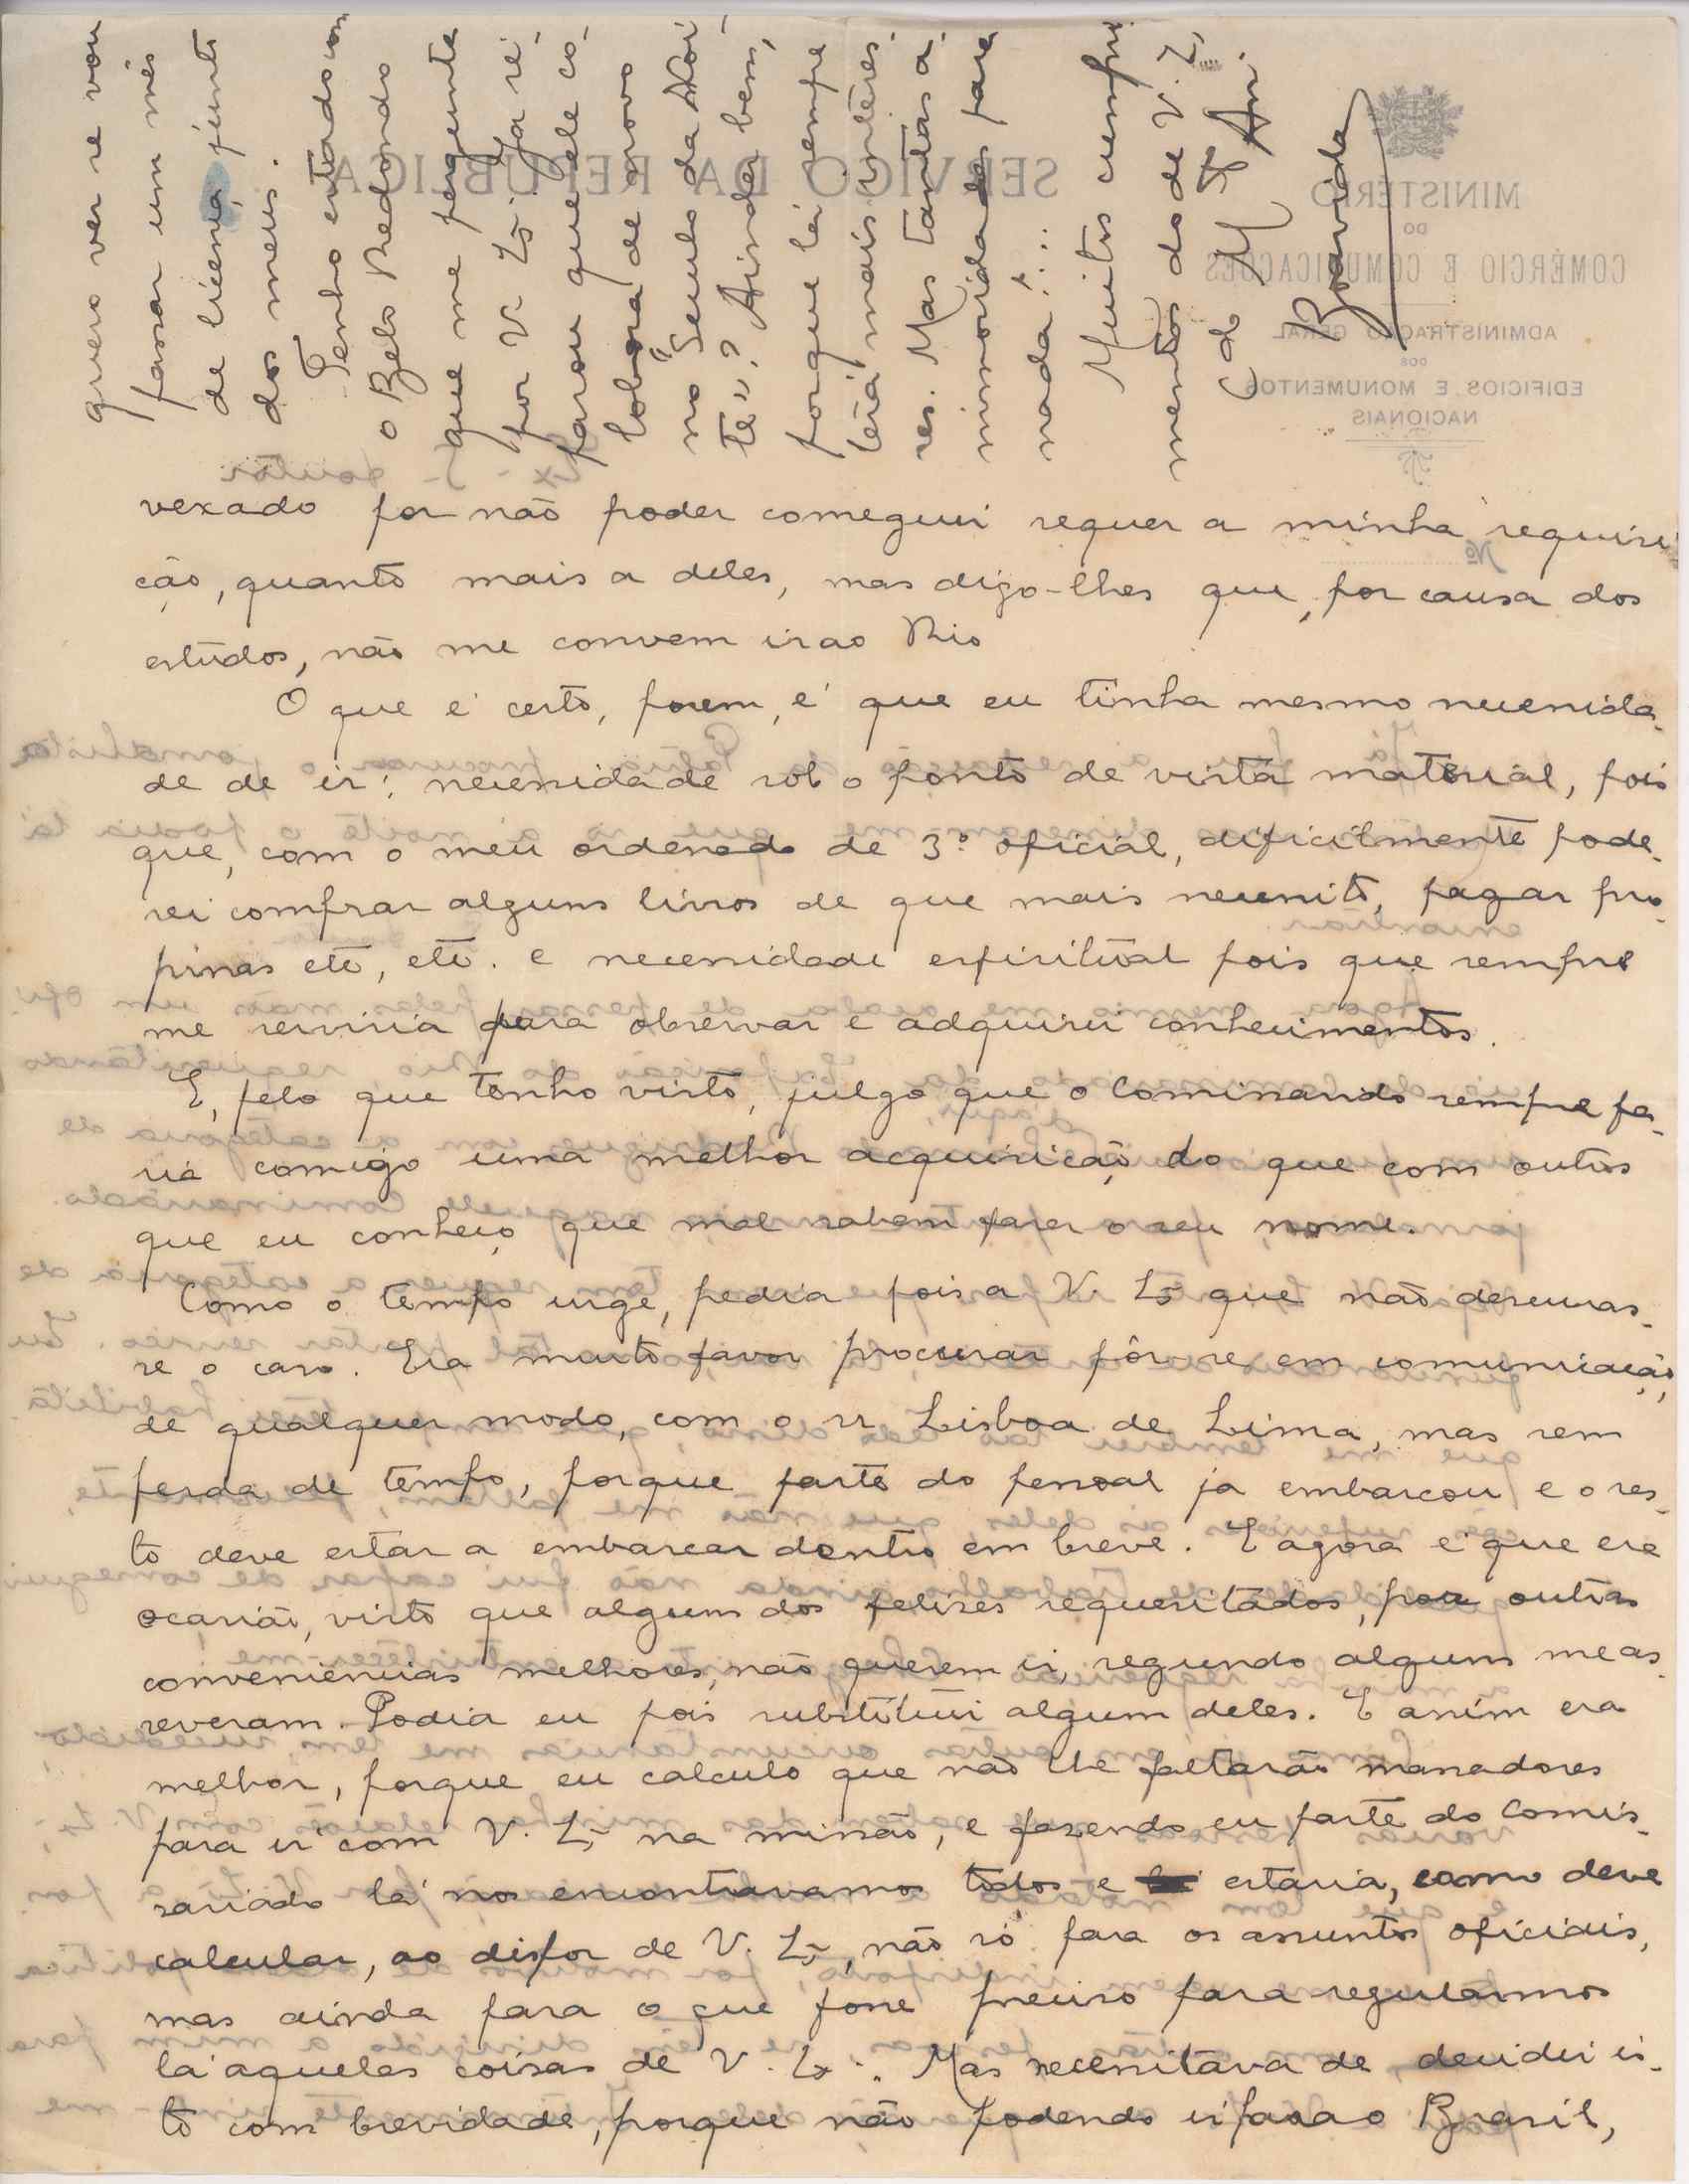 vexado por não poder conseguir sequer a minha requisi-
ção, quanto mais a deles, mas digo-lhes que, por causa dos
estudos, não me convem ir ao Rio
O que é certo, porem, é que eu tinha mesmo necessida-
de de ir: necessidade sob o ponto de vista material, pois
que, com o meu ordenado de 3.º oficial, dificilmente pode-
rei comprar alguns livros de que mais necessito, pagar pro-
pinas etc, etc. e necessidade espiritual pois que sempre
me serviria para observar e adquirir conhecimentos.
E, pelo que tenho visto, julgo que o Comissariado sempre fa-
ria comigo uma melhor acquisição do que com outros
que eu conheço que mal sabem fazer o seu nome.
Como o tempo urge, pedia pois a V. Ex.ª que não descuras-
se o caso. Era muito favor procurar pôr-se em comunicação,
de qualquer modo, com o sr Lisboa de Lima, mas sem
perda de tempo, porque parte do pessoal ja embarcou e o res-
to deve estar a embarcar dentro em breve. E agora é que era
ocasião, visto que alguns dos felizes requesitados, por outras
conveniencias melhores, não querem ir, segundo alguns me as-
severam. Podia eu pois substituir algum deles. E assim era
melhor, porque eu calculo que não lhe faltarão massadores
para ir com V. Ex.ª na missão, e fazendo eu parte do Comis-
sariado lá nos encontravamos todos e estaria, como deve
calcular, ao dispor de V. Ex.ª, não só para os assuntos oficiais,
mas ainda para o que fosse preciso para regularmos
lá aquelas coisas de V. Ex.ª. Mas necessitava de decidir is-
to com brevidade, porque não podendo ir para o Brasil,
quero ver se vou
passar um mês
de licença junto
dos meus.
Tenho estado com
o Belo Redondo
que me pergunta
por V. Ex.ª. Ja re-
parou que ele co-
labora de novo
no "Seculo da Noi-
te"? Ainda bem,
porque lá sempre
terá mais interes-
ses. Mas tantas a-
nimosidades para
nada!...
Muitos cumpri-
mentos do de V. Ex.ª
C.do M.to At.
Bravida
SERVIÇO DA REPÚBLICA
MINISTÉRIO
DO
COMÉRCIO E COMUNICAÇÕES
ADMINISTRAÇÃO GERAL
DOS
EDIFICIOS E MONUMENTOS
NACIONAIS
Nº